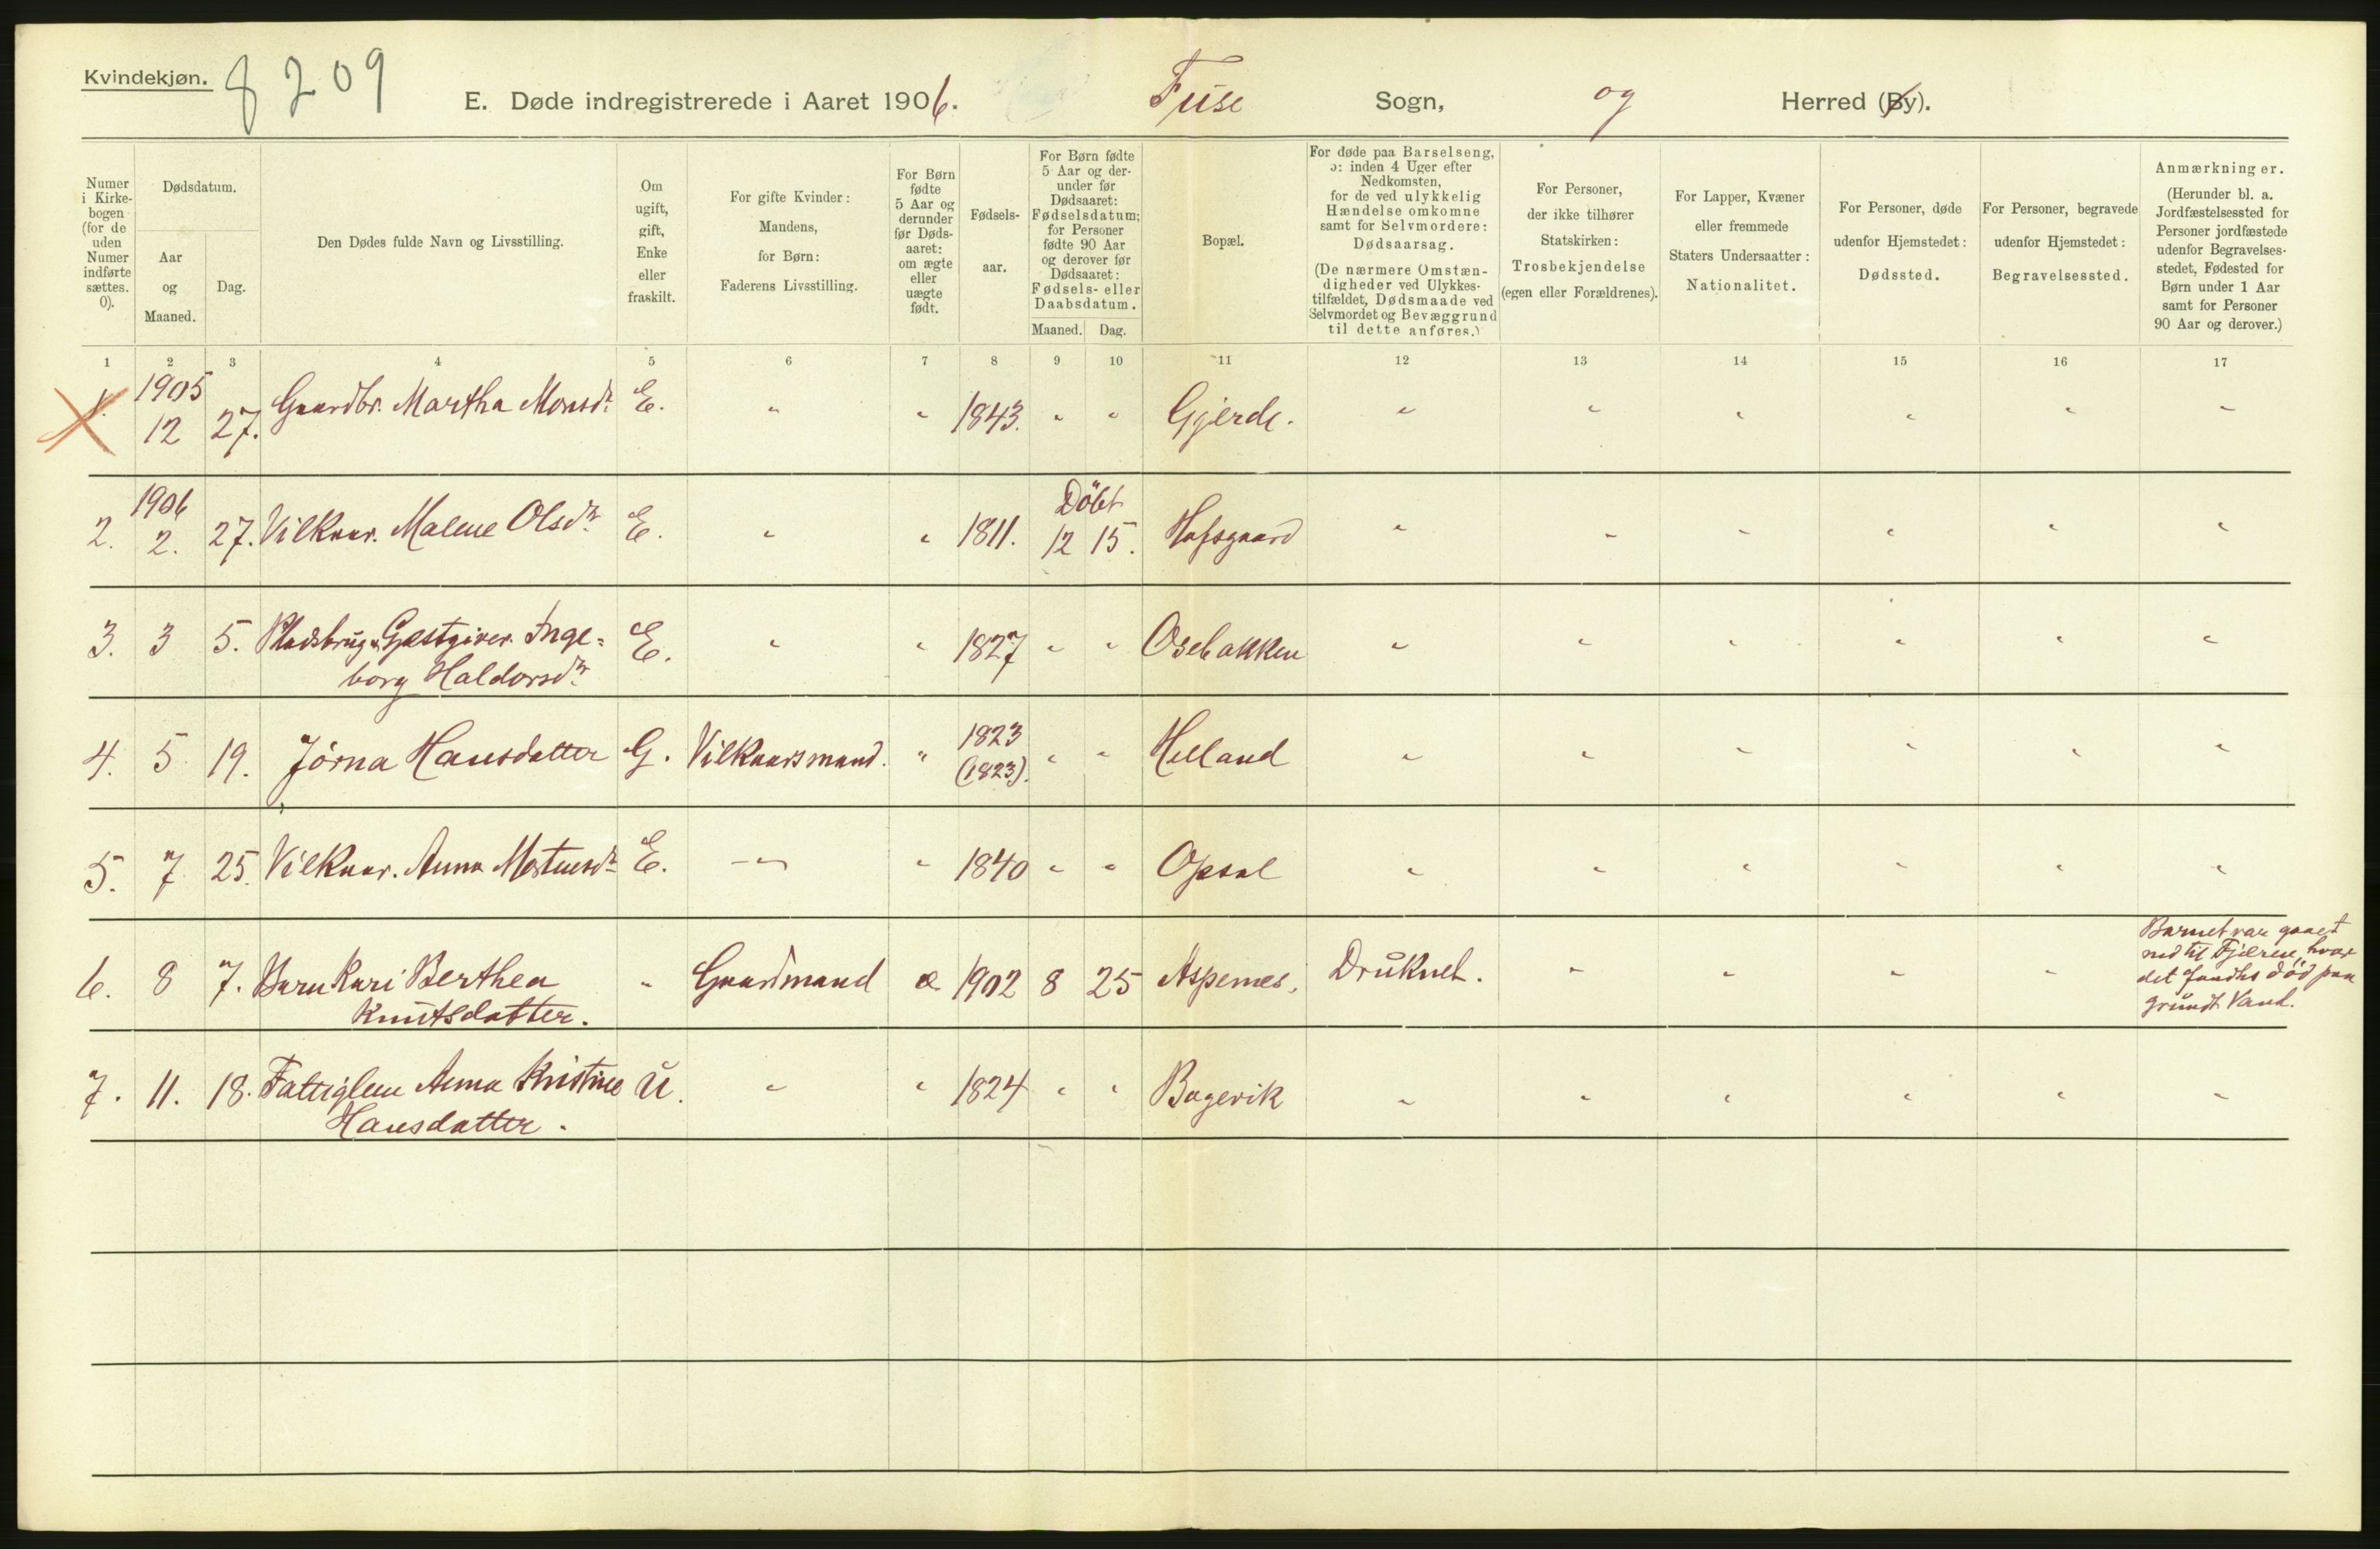 Kvindekjøn.
8 209
E. Døde indregistrerede i Aaret 1906. Fuse Sogn, og Herred (By).
Numer i Kirkebogen (for de uden Numer indførte sættes. 0).
Dødsdatum.
Aar og Maaned.
Dag.
Den Dødes fulde Navn og Livsstilling.
Om ugift, gift, Enke eller fraskilt.
For gifte Kvinder: Mandens, for Børn: Faderens Livsstilling.
For Børn fødte 5 Aar og derunder før Dødsaaret: om ægte eller uægte født.
Fødselsaar.
For Børn fødte 5 Aar og derunder før Dødsaaret: Fødselsdatum; for Personer fødte 90 Aar og derover før Dødsaaret: Fødsels- eller Daabsdatum.
Maaned. Dag.
Bopæl.
For døde paa Barselseng, ɔ: inden 4 Uger efter Nedkomsten, for de ved ulykkelig Hændelse omkomne samt for Selvmordere: Dødsaarsag.
(De nærmere Omstændigheder ved Ulykkestilfældet, Dødsmaade ved Selvmordet og Bevæggrund til dette anføres.)
For Personer, der ikke tilhører Statskirken: Trosbekjendelse (egen eller Forældrenes).
For Lapper, Kvæner eller fremmede Staters Undersaatter: Nationalitet.
For Personer, døde udenfor Hjemstedet: Dødssted.
For Personer, begravede udenfor Hjemstedet: Begravelsessted.
Anmærkninger.
(Herunder bl. a. Jordfæstelsessted for Personer jordfæstede udenfor Begravelsesstedet, Fødested for Børn under 1 Aar samt for Personer 90 Aar og derover.)
1 2 3 4 5 6 7 8 9 10 11 12 13 14 15 16 17
1905
1. 12 27. Gaardbr. Martha Monsdr. E. " " 1843. " " Gjerde. " " " " " "
1906 Döbt
2. 2. 27. Vilkaar. Malene Olsdr. E. " " 1811. 12 15. Hafsgaard " " " " " "
3. 3 5. Pladsbrug. Gæstgiver. Inge= E. " " 1827 " " Osebakken " " " " " "
borg Haldorsdr.
4. 5 19. Jörna Hansdatter G. Vilkaarsmand. " 1823 " " Helland " " " " " "
(1823).
5. 7 25. Vilkaar. Anna Mortensdr E. -"- " 1840 " " Opsal " " " " " "
6. 8 7. Barn Kari Berthea " Gaardmand æ 1902 8 25 Aspenes. Druknet. " " " "
Knutsdatter.
Barnet var gaaet
ned til Fjæren, hvor
det fandtes död paa
grundt Vand.
7. 11. 18. Fattiglem Anna Kristine U. " " 1824 " " Bogevik " " " " " "
Hansdatter.